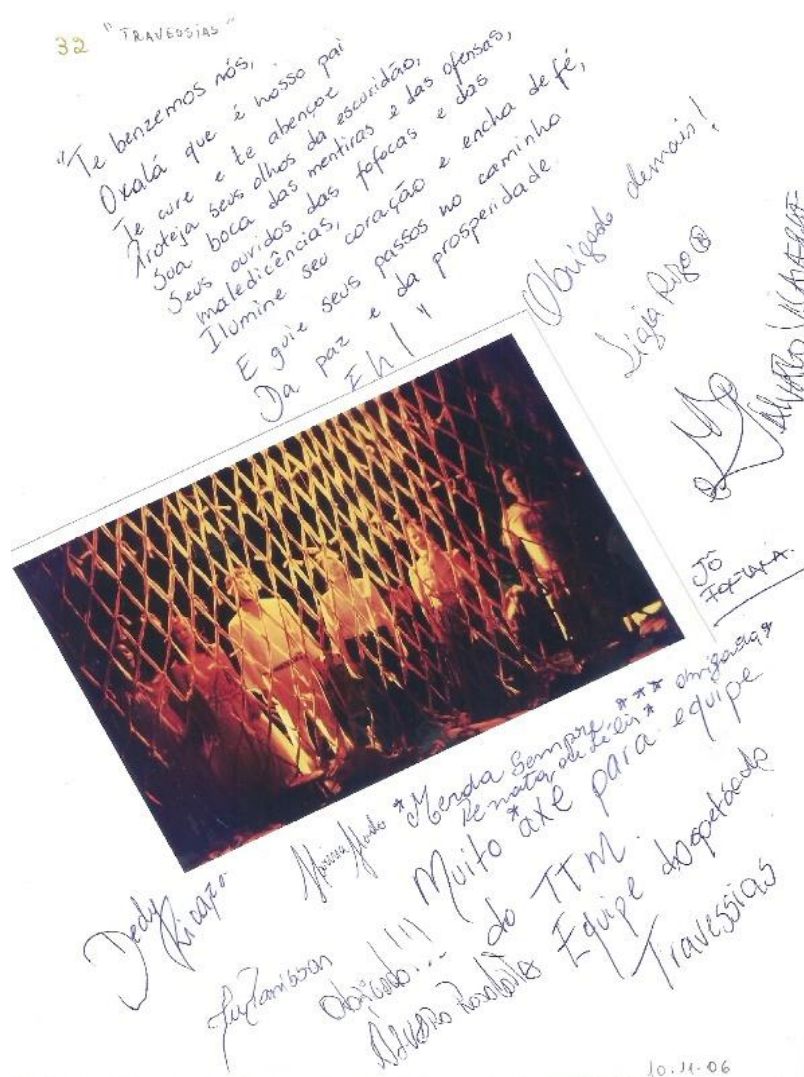 32 "TRAVESSIAS"
"Te benzemos nós,
Oxalá que é nosso pai
Te cure e te abençoe
Proteja seus olhos da escuridão,
Sua boca das mentiras e das ofensas,
Seus ouvidos das fofocas e das
maledicências,
Ilumine seu coração e encha de fé,
E guie seus passos no caminho
Da paz e da prosperidade.
Eh!"
Obrigado demais!
Ligia Rizo
JÔ
FORNARI.
*Merda Sempre *** obrigada*
Renata de Lélis*
*Muito axé para equipe
do TTM.
Equipe do espetáculo
Travessias
Dedy
Ricardo
Obrigado...!!!
10.11.06